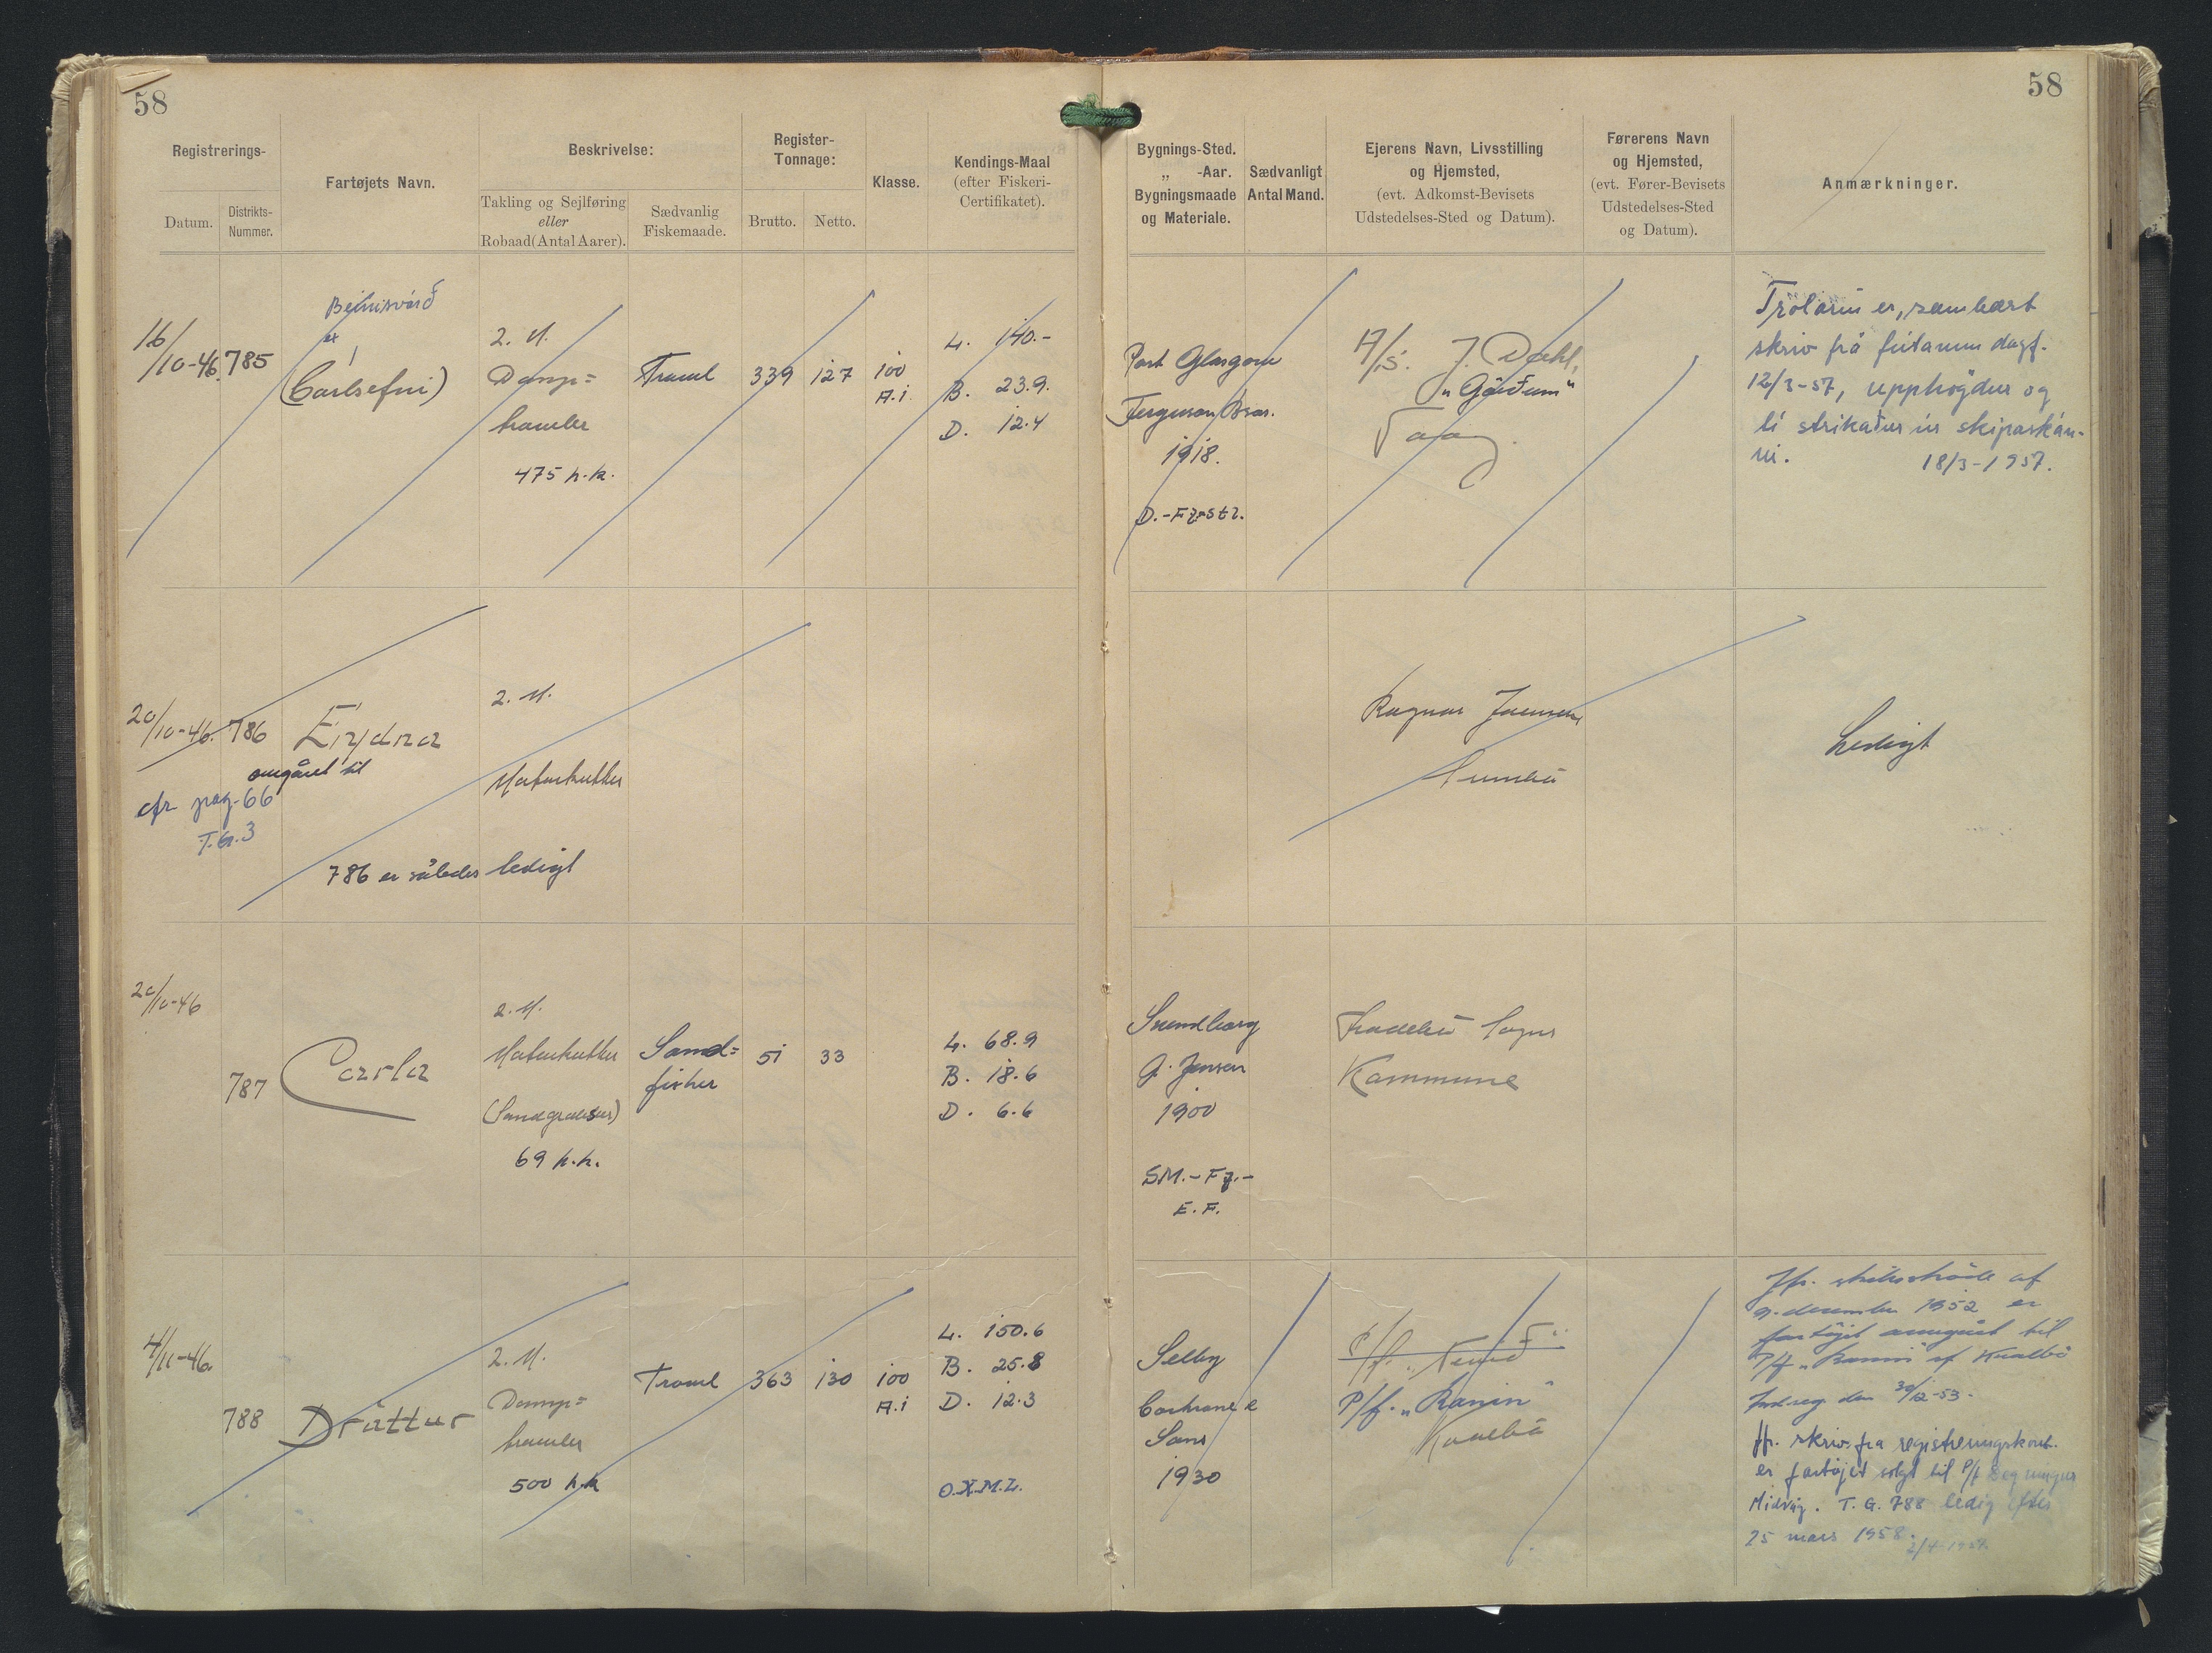 58
58
Registrerings-
Datum.
Distrikts-
Nummer.
Fartøjets Navn.
Beskrivelse:
Takling og Sejlføring
eller
Robaad (Antal Aarer).
Sædvanlig
Fiskemaade.
Register-
Tonnage:
Brutto.
Netto.
Klasse.
Kendings-Maal
(efter Fiskeri-
Certifikatet).
Bygnings-Sted.
„ -Aar.
Bygningsmaade
og Materiale.
Sædvanligt
Antal Mand.
Ejerens Navn, Livsstilling
og Hjemsted,
(evt. Adkomst-Bevisets
Udstedelses-Sted og Datum).
Førerens Navn
og Hjemsted,
(evt. Fører-Bevisets
Udstedelses-Sted
og Datum).
Anmærkninger.
16/10-46.
785
Beinisvørð
ex
(Carlsefni)
2. M.
Damp=
trawler
475 h.k.
Trawl
339
127
100
A.i.
L. 140.-
B. 23.9.
D. 12.4
Port Glasgow
Ferguson Bros.
1918.
D.-Fz-st2.
A/S. J. Dahl,
"Gørðum"
Vaag.
Trolarin er, sambært
skriv frá fútanum dagf.
12/3-57, upphøgdur og
tí strikaður úr skipaskán-
ni. 18/3-1957.
20/10-46.
786
Eiydna
omgåret til
cfr pag. 66
T.G. 3
786 er således ledigt
2. M.
Motorkutter
Ragnar Joensen
Sumbø
Ledigt
20/10-46
787
Carla
2. M.
Motorkutter
69 h.k.
Sand=
fisker
51
33
L. 68.9
B. 18.6
D. 6.6
Svendborg
J. Jensen
1900
SM.-Fz.-
E.F.
Sogns
Kommune
4/11-46
788
Dráttur
2. M.
Damp=
trawler
500 h.k
Trawl
363
130
100
A.i
L. 150.6
B. 25.8
D. 12.3
O.X.M.L.
Selby
Cochrane &
Sons
1930
P/f.
P/f. "Ranin"
Kvalbø
Jfr. af
9. december 1952 er
fartøjet omgået til
P/f "Ranin" af Kvalbø
Indreg. den 30/12-53.
Jfr. skriv. fra registreringskont.
er fartøjet solgt til P/f
Midvåg. T.G. 788 ledig efter
25 mars 1958.